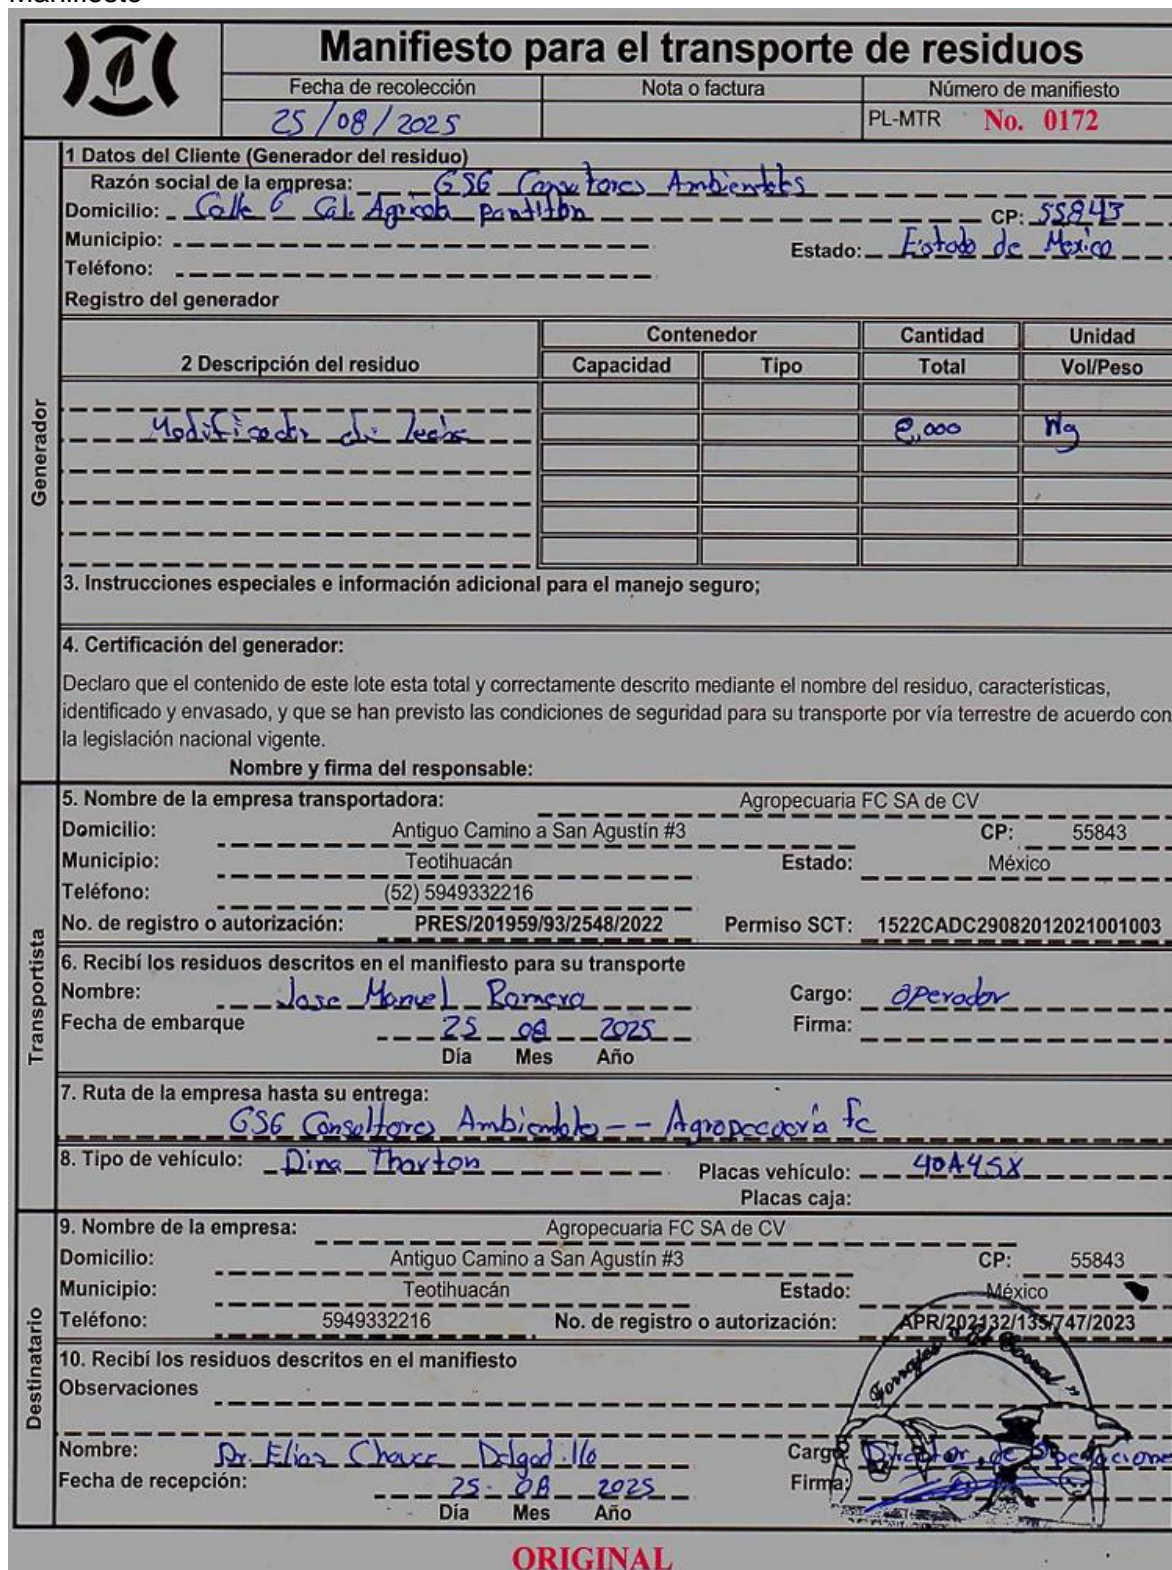 Manifiesto
Manifiesto para el transporte de residuos
Fecha de recolección Nota o factura Número de manifiesto
25/08/2025 PL-MTR No. 0172
1 Datos del Cliente (Generador del residuo)
Razón social de la empresa: GSG Consultores Ambientales
Domicilio: Calle 6 Col. Agricola pantitlan CP: 55843
Municipio: Estado: Estado de Mexico
Teléfono:
Registro del generador
Contenedor Cantidad Unidad
2 Descripción del residuo Capacidad Tipo Total Vol/Peso
Modificador de leche ,000 Kg
Generador
3. Instrucciones especiales e información adicional para el manejo seguro;
4. Certificación del generador:
Declaro que el contenido de este lote esta total y correctamente descrito mediante el nombre del residuo, características,
identificado y envasado, y que se han previsto las condiciones de seguridad para su transporte por vía terrestre de acuerdo con
la legislación nacional vigente.
Nombre y firma del responsable:
Transportista
5. Nombre de la empresa transportadora: Agropecuaria FC SA de CV
Domicilio: Antiguo Camino a San Agustín #3 CP: 55843
Municipio: Teotihuacán Estado: México
Teléfono: (52) 5949332216
No. de registro o autorización: PRES/201959/93/2548/2022 Permiso SCT: 1522CADC29082012021001003
6. Recibí los residuos descritos en el manifiesto para su transporte
Nombre: Jose Manuel Romero Cargo: Operador
Fecha de embarque 25 08 2025 Firma:
Día Mes Año
7. Ruta de la empresa hasta su entrega:
GSG Consultores Ambientales -- Agropecuaria fc
8. Tipo de vehículo: Dina Thorton Placas vehículo: 40A45X
Placas caja:
Destinatario
9. Nombre de la empresa: Agropecuaria FC SA de CV
Domicilio: Antiguo Camino a San Agustín #3 CP: 55843
Municipio: Teotihuacán Estado: México
Teléfono: 5949332216 No. de registro o autorización: APR/202132/135/747/2023
10. Recibí los residuos descritos en el manifiesto
Forrajes "El Corral"
Observaciones
Nombre: Dr. Elias Chavez Delgadillo Cargo: Director de Operaciones
Fecha de recepción: 25 08 2025 Firma:
Día Mes Año
ORIGINAL